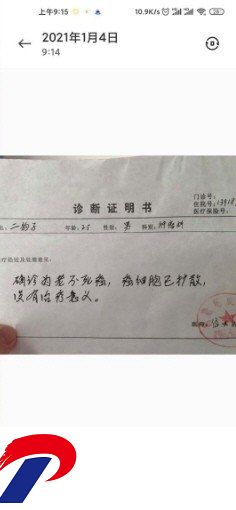 上午9:15
10.9K/s
26
2021年1月4日
9:14
诊断证明书
门诊号:
住院号:13918
医疗保险号:
二狗子 年龄:25 性别:男 科别:肿瘤科
疗经过及处理意见:
确诊为老不死癌,癌细胞已扩散,
没有治疗意义。